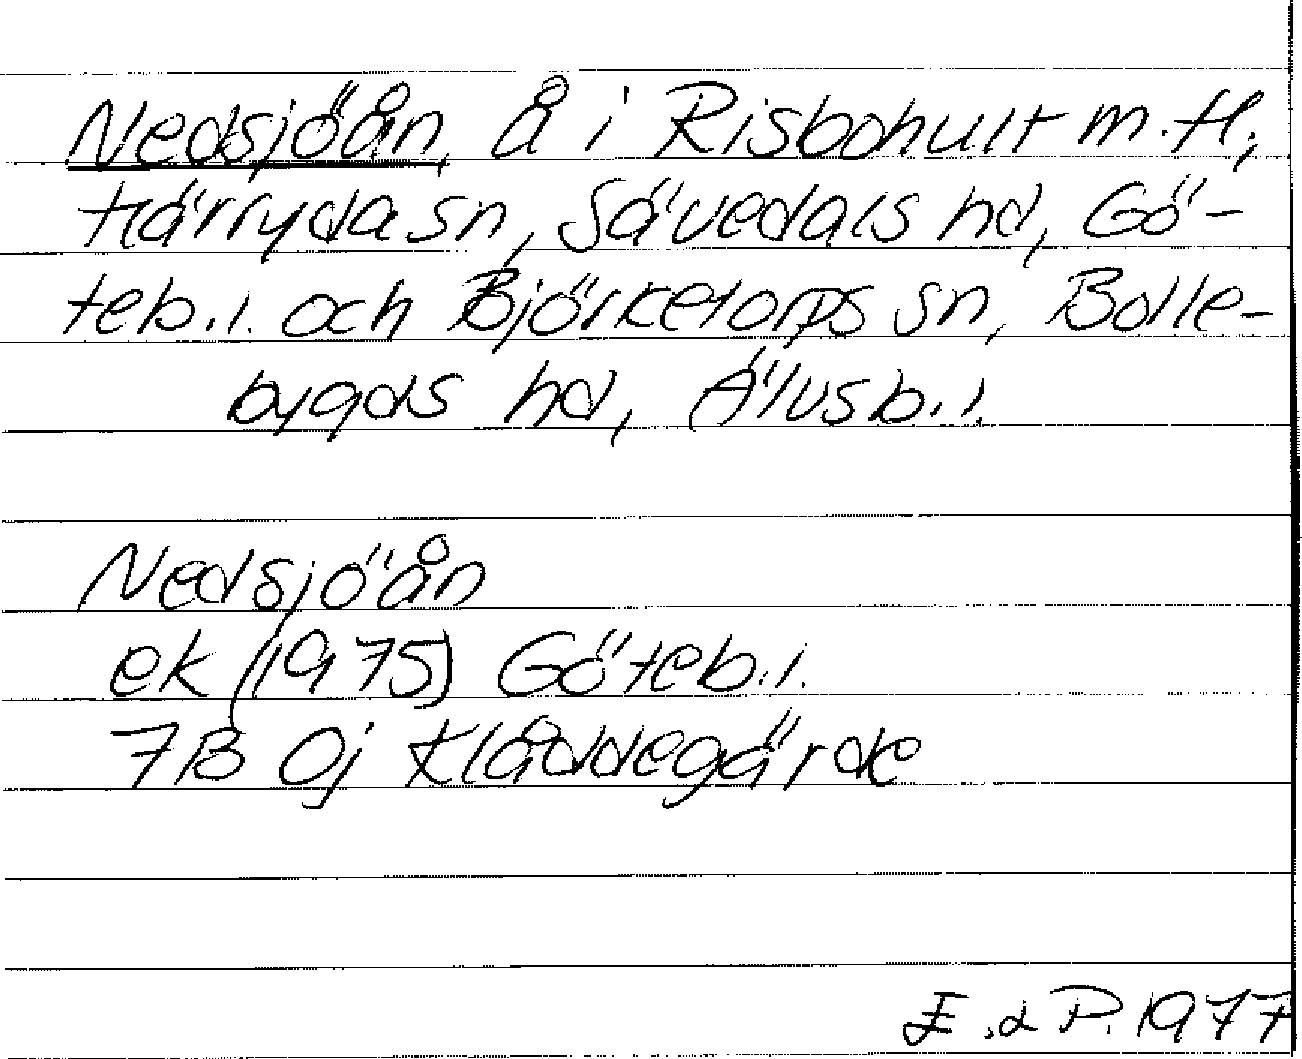 Nedsjöån, å i Risbohult m.fl.,
Härryda sn, Sävedals hd, Gö-
teb.l. och Björketorps sn, Bolle-
bygds hd, Älvsb.l.
Nedsjöån
ek (1975) Göteb.l.
7B 0j Klåddegärde
E.d P. 1977